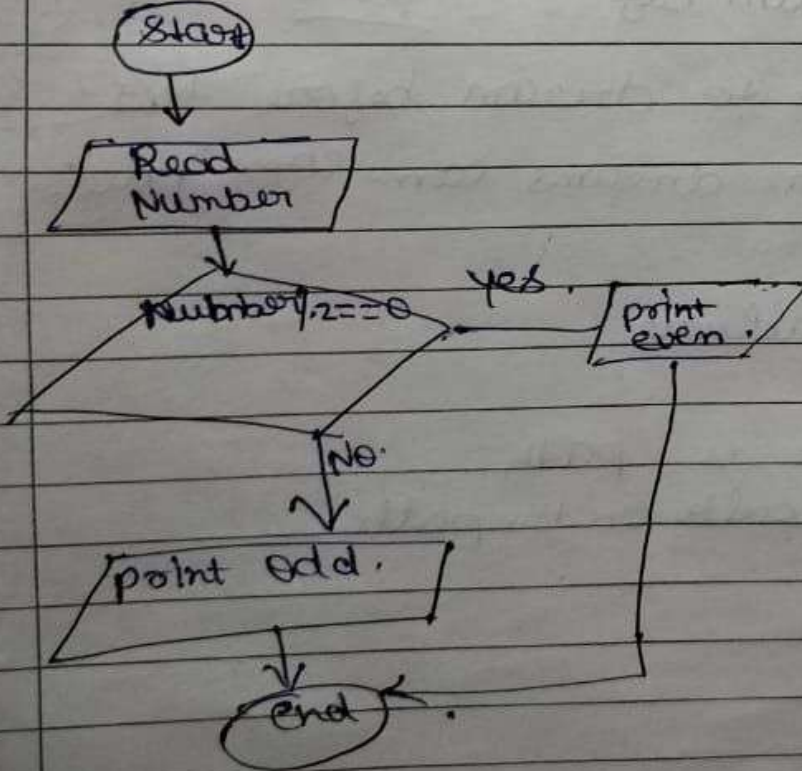 Start
Read
Number
Number%2==0
Yes.
print
even.
No.
print odd.
end